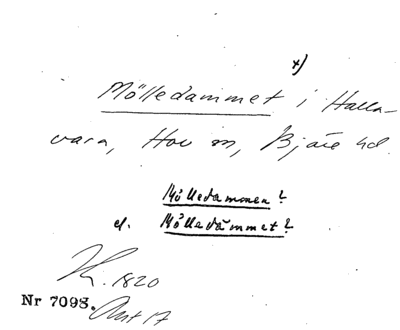 x)
Mölledammet i Halla-
vara, Hov sn, Bjäre hd.
Mölledammen?
el. Mölledämmet?
1820
Nr 7098.
17